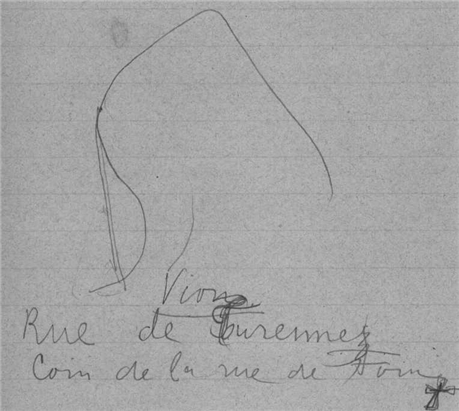 Vion
Rue de Turennes
Coin de la rue de